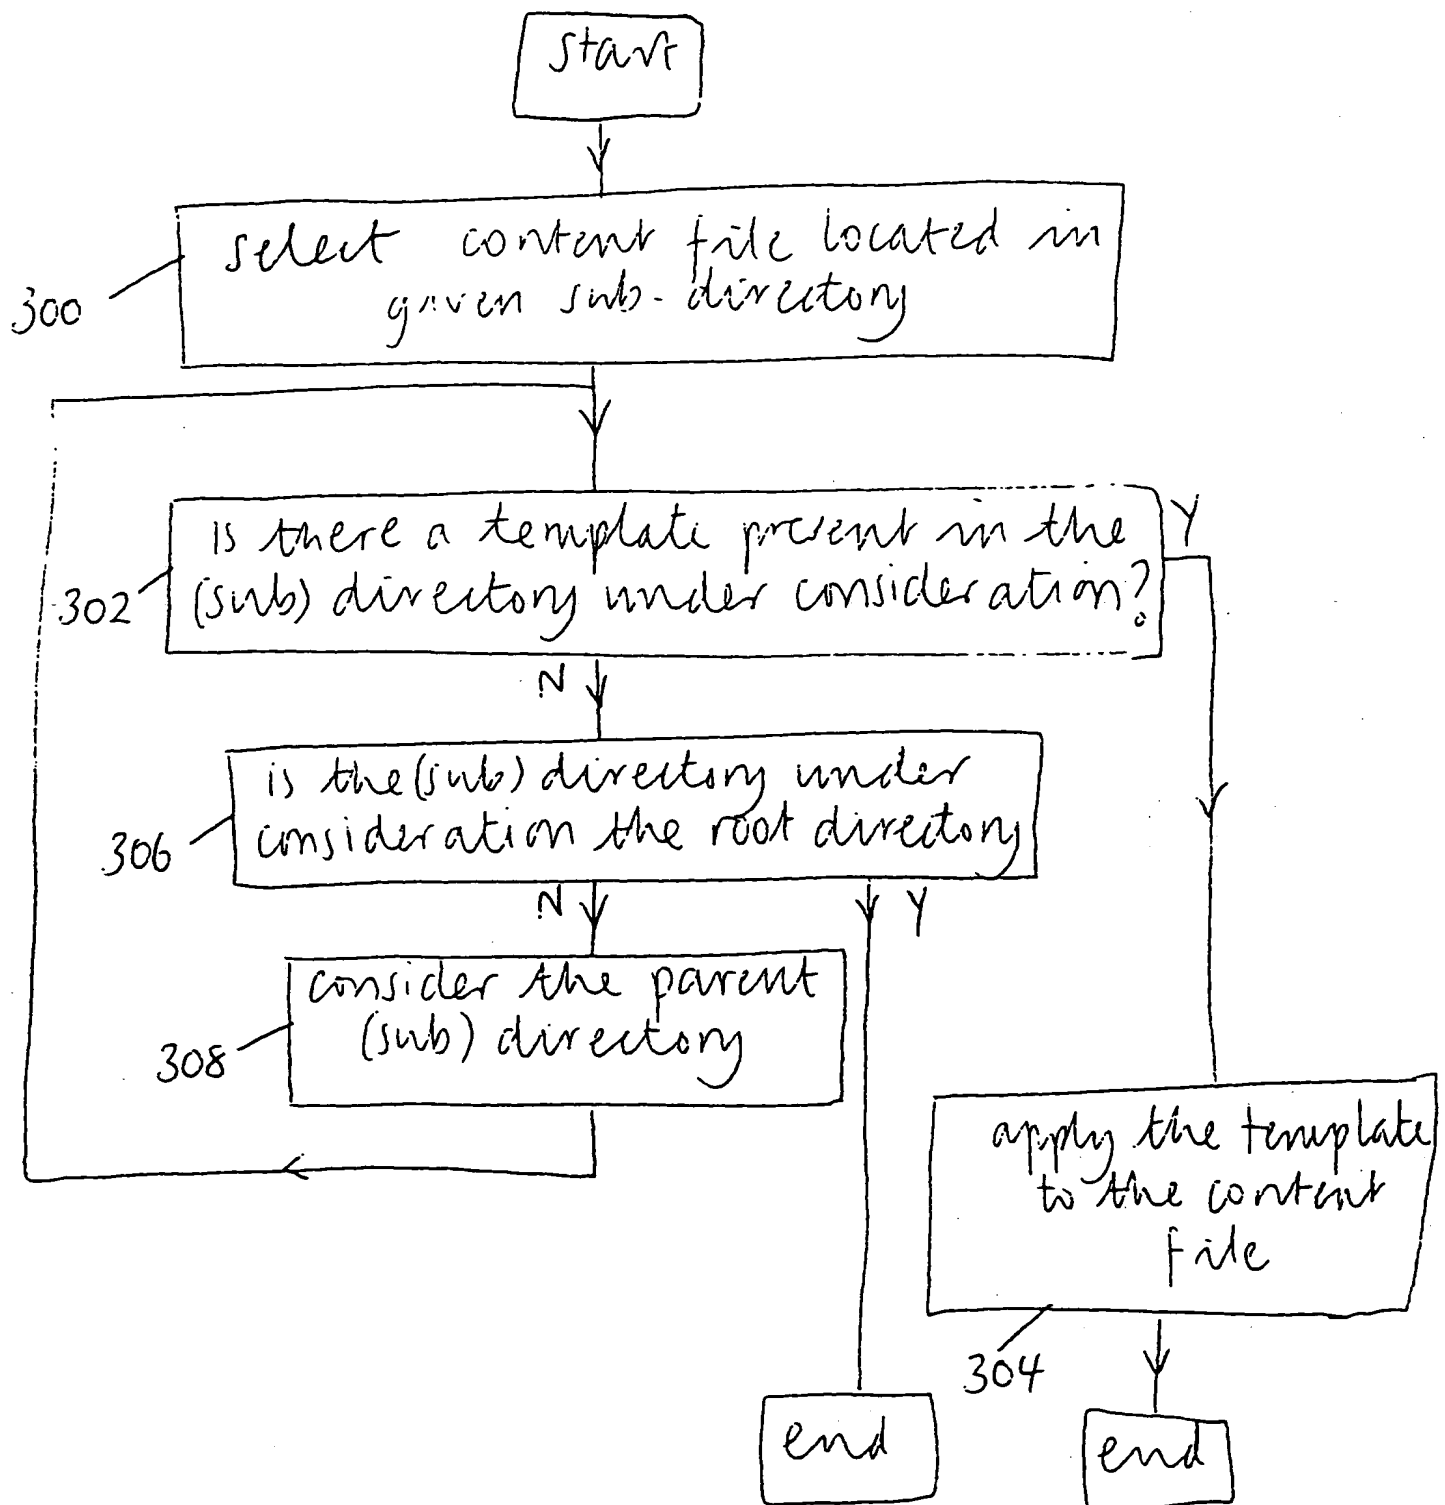 start
select content file located in
given sub-directory
300
is there a template present in the
(sub) directory under consideration?
Y
302
N
is the (sub) directory under
consideration the root directory
306
N
Y
consider the parent
(sub) directory
308
apply the template
to the content
file
304
end
end